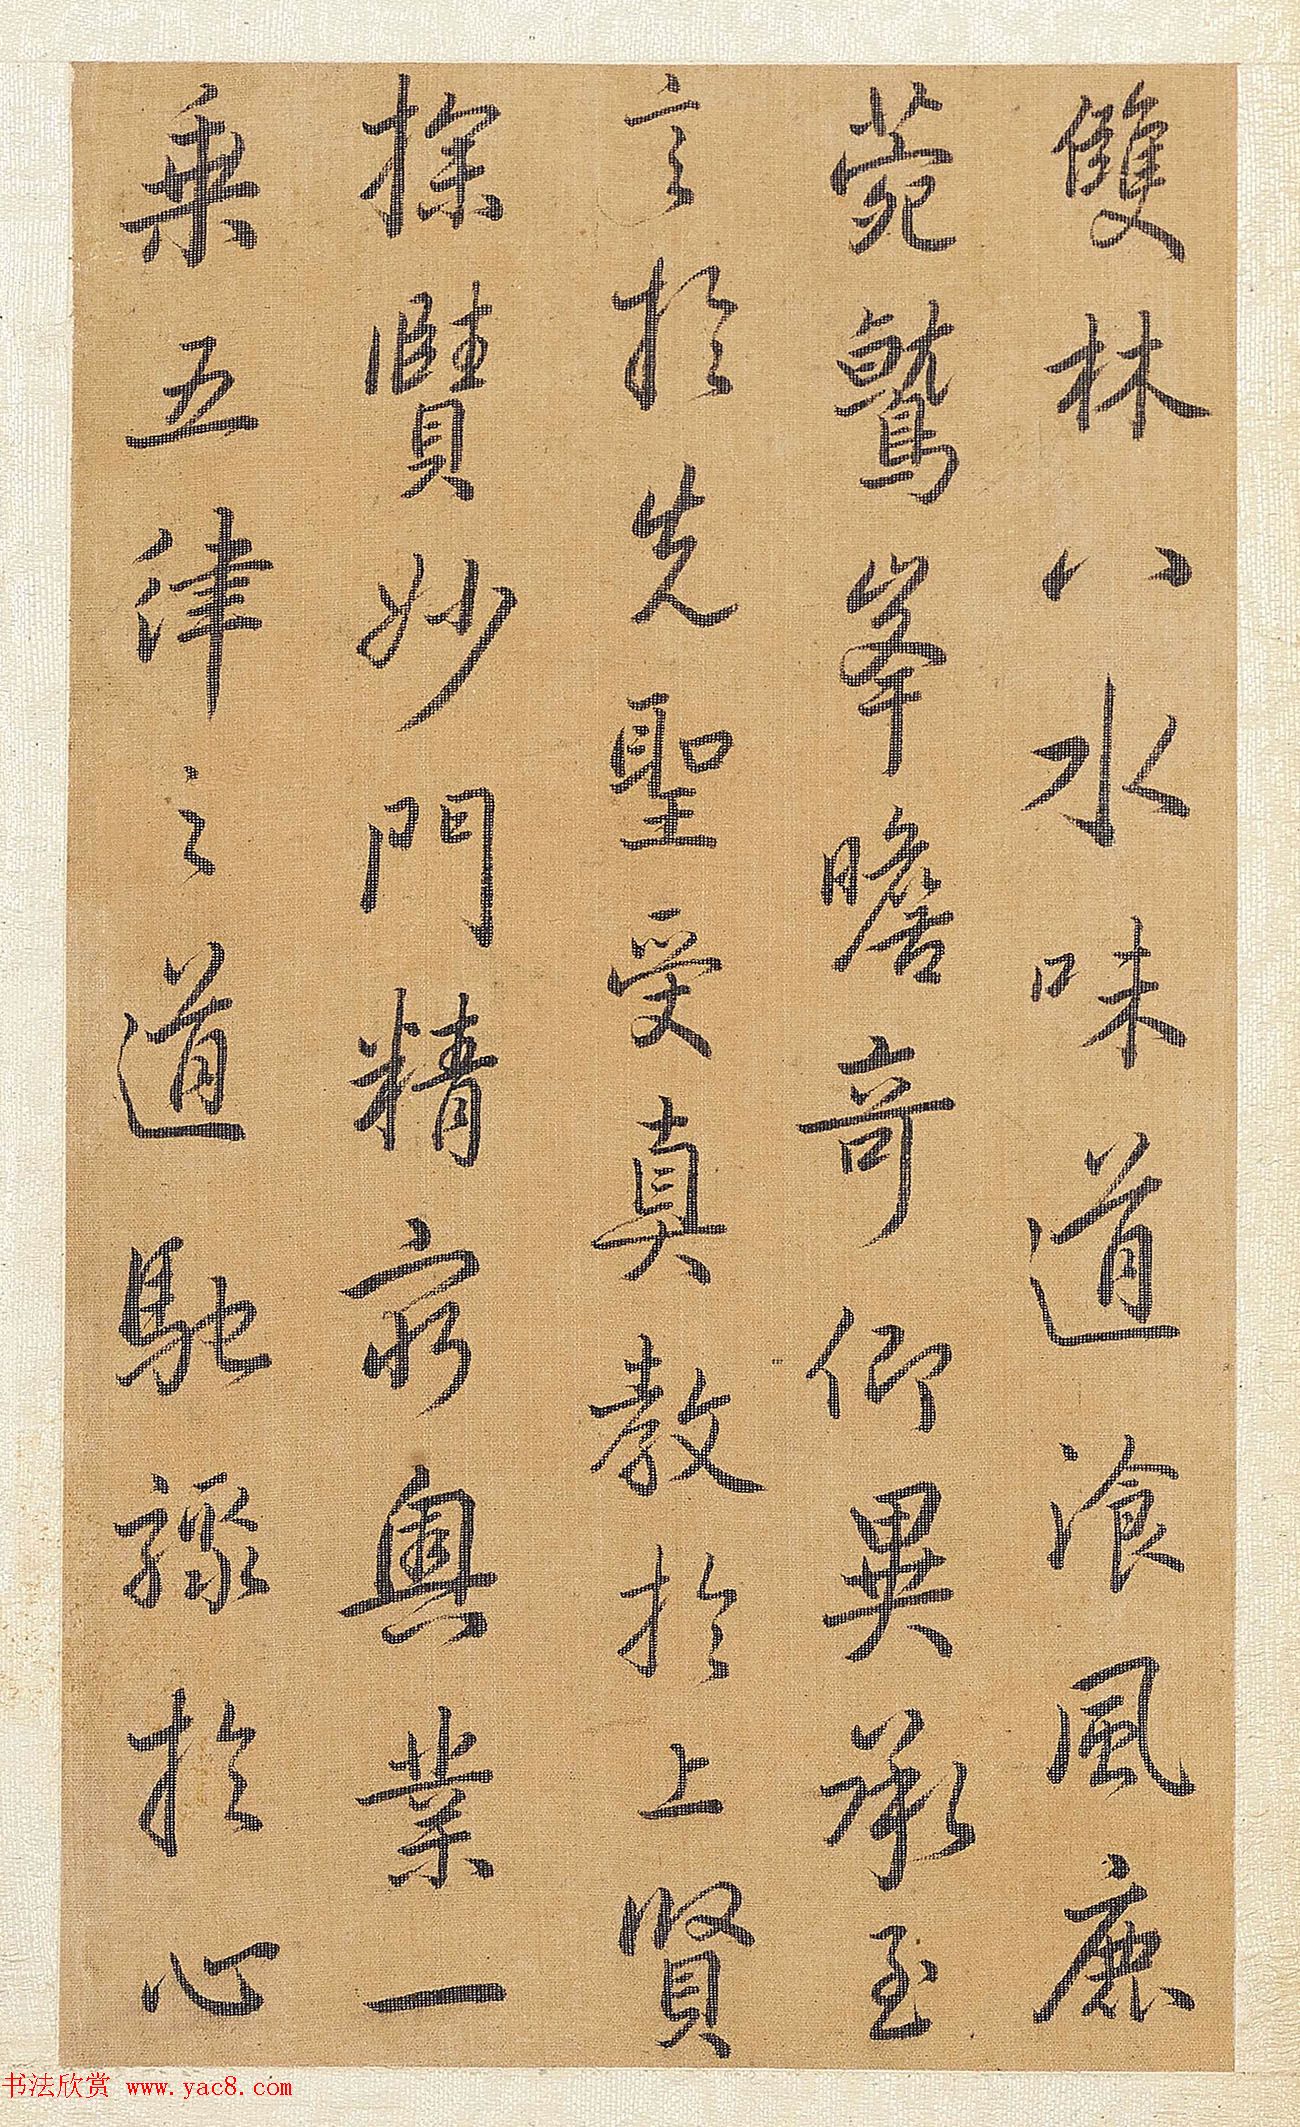 雙林八水味道飡風鹿
菀鷲峯瞻奇仰異承至
言於先聖受真教於上賢
探賾妙門精窮奧業一
乗五律之道馳驟於心
书法欣赏 www.yac8.com